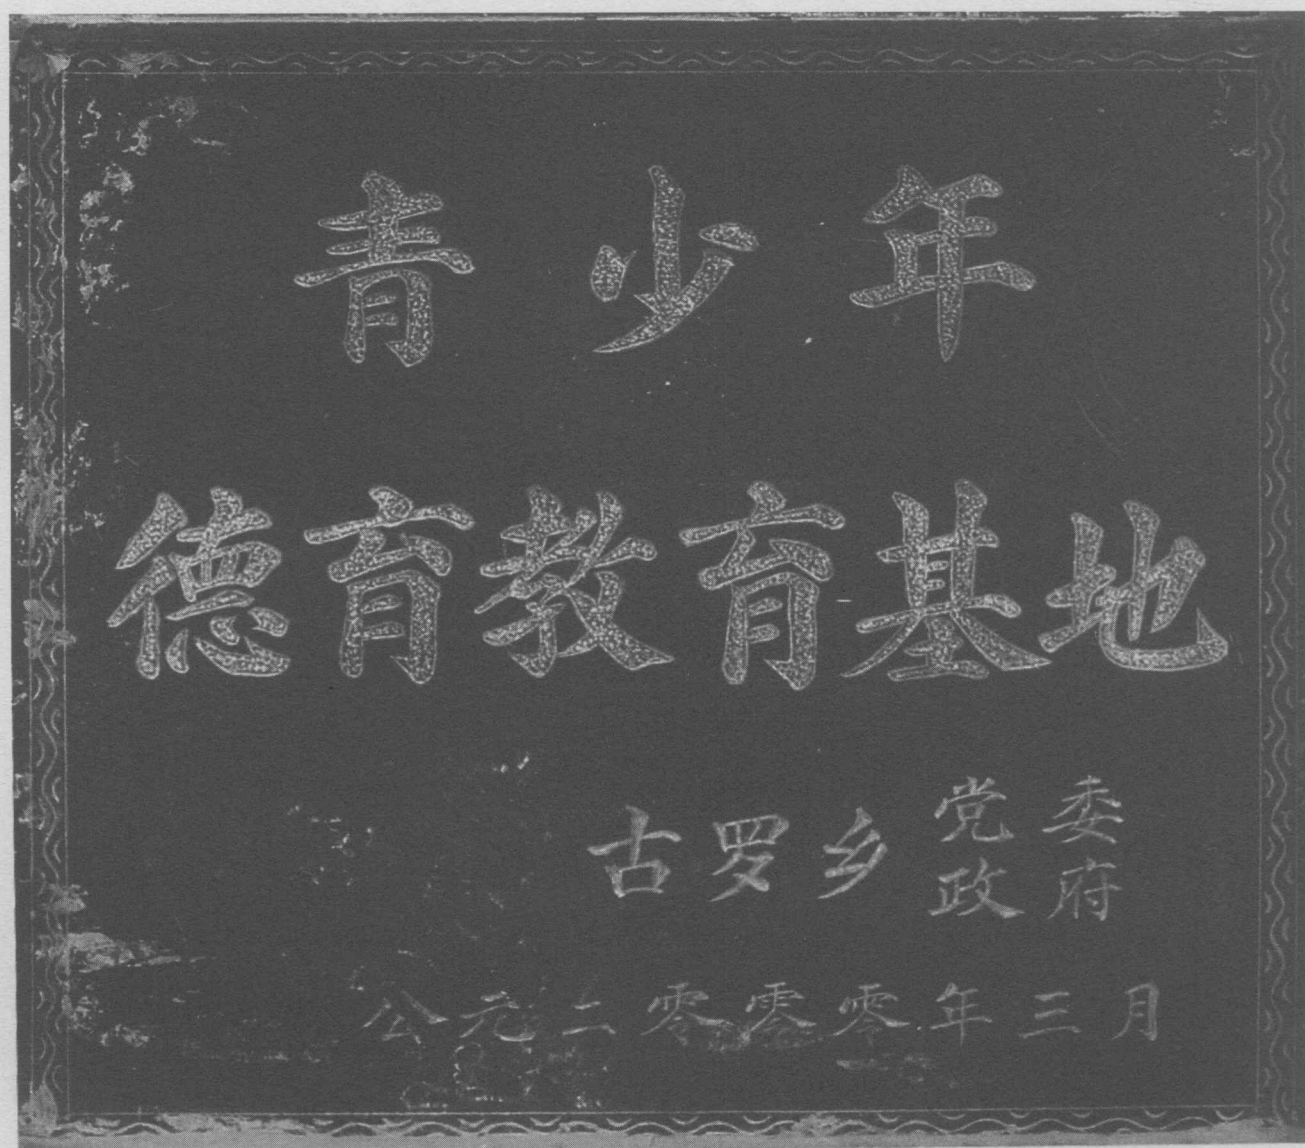 青少年
德育教育基地
古罗乡党委政府
公元二零零零年三月